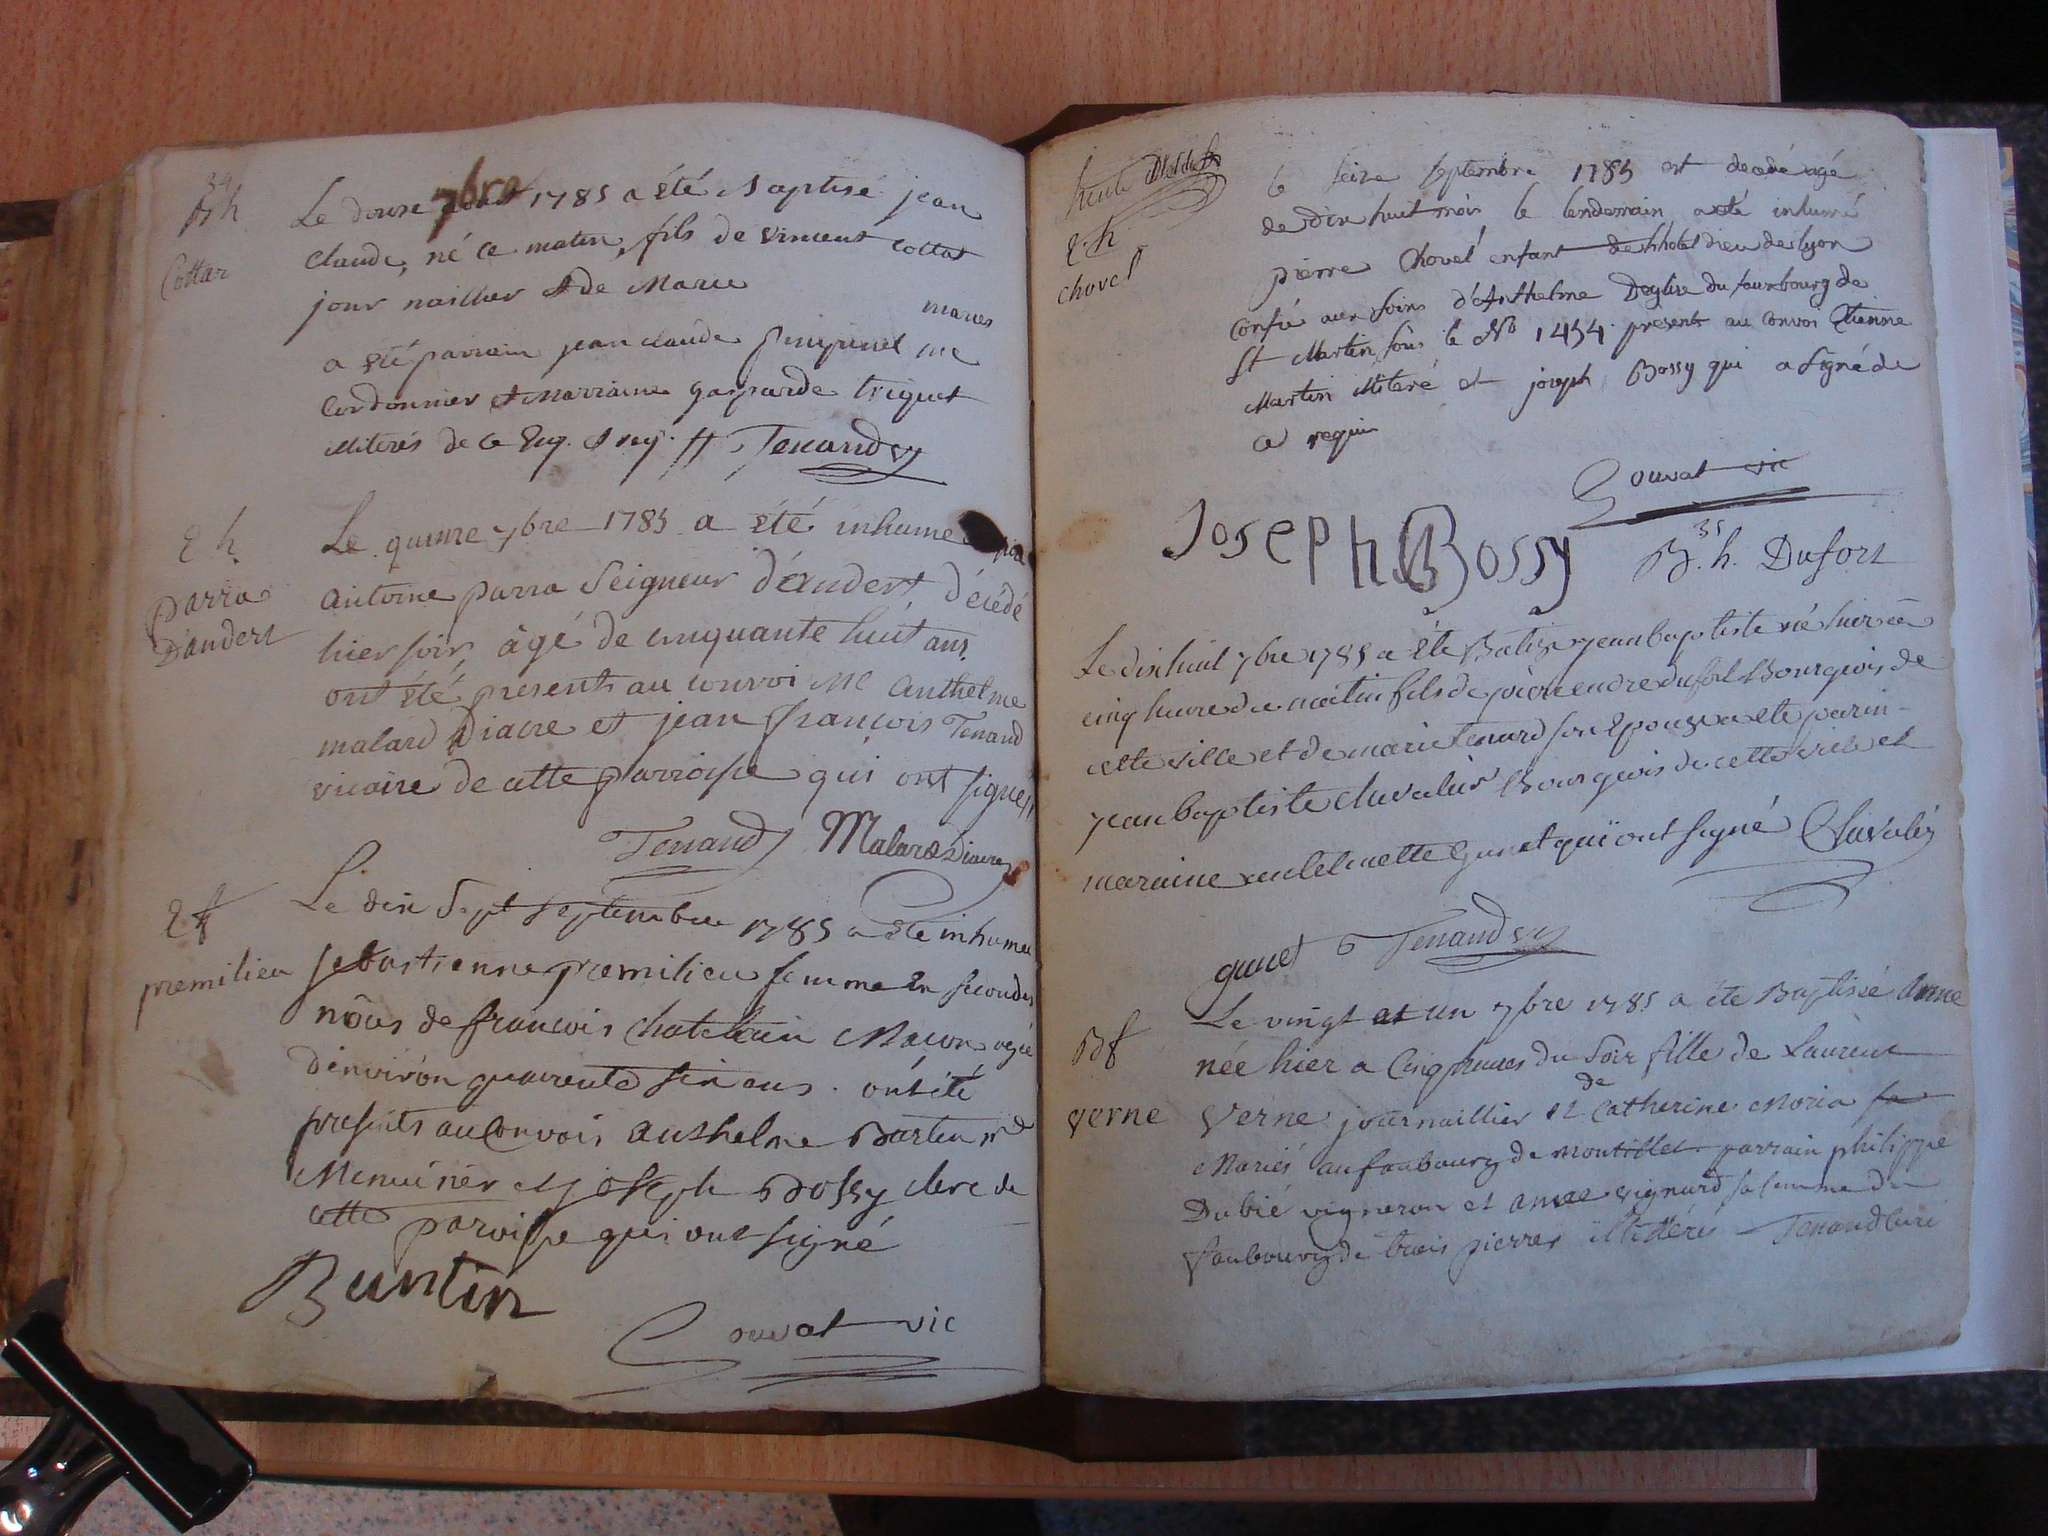 34
B h
Cottar
Le douze 7bre 1785 a été Baptisé jean
claude, né ce matin, fils de vincent Cottat
jour naillier & de Marie
mariés
a été parrain jean claude me
Cordonnier et Marraine gasparde triquet
illiterés de ce Tenand
E h
Parra
D'andert
Le quinze 7bre 1785 a été inhumé
antoine parra Seigneur d'andert, décédé
hier soir, âgé de cinquante huit ans,
ont été présents au convoi Me anthelme
malard Diacre et jean françois Tenand
vicaire de cette parroisse qui ont signés
Tenand Malard Diacre
E f
premilieu
Le dix Sept septembre 1785 a été inhumée
sebastienne premilieu femme en secondes
nôces de françois chatelain Maçon agée
d'environ quarente six ans. ont été
presents au Convois anthelme Burtin md
Menuisier et joseph Bossy clerc de
cette paroisse qui ont signé
Burtin
Gouvat vic
E h
chovel
le seize septembre 1785 est decedé agé
de dix huit mois le lendemain a été inhumé
pierre Chovel enfant de hhotel dieu de lyon
confié aux soins d'Anthelme Deglise du fauxbourg de
St Martin sous le No 1454. presents au convoi Etienne
Martin illiteré et joseph Bossy qui a signé de
ce requis
Gouvat vic
Joseph Bossy
35
B. h. Dufort
Le dix huit 7bre 1785 a été Batisé jean baptiste né hier a
cinq heure du matin fils de pierre endre dufort Bourgeois de
cette ville et de marie tenard son Epouse a ete parin
jean baptiste chevalier Bourgeois de cette ville et
maraine antelmette qui ont signé Chevalier
Tenand
B f
verne
Le vingt et un 7bre 1785 a été Baptisée Anne
née hier a Cinq heures du Soir fille de Laurent
de
Verne journaillier et Catherine Moria sa
Mariés au faubourg de Montillet parrain philippe
Dubié vigneron et anne vignard sa femme du
faubourg de trois pierres illitérés Tenand curé